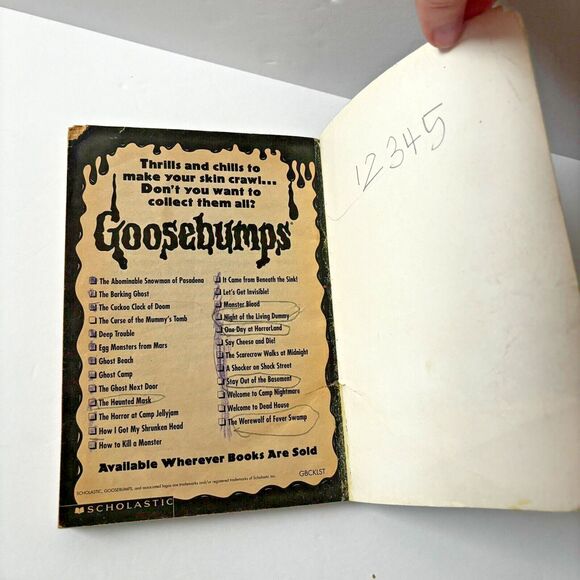 Thrills and chills to
make your skin crawl...
Don't you want to
collect them all?
Goosebumps®
The Abominable Snowman of Pasadena
The Barking Ghost
The Cuckoo Clock of Doom
The Curse of the Mummy's Tomb
Deep Trouble
Egg Monsters from Mars
Ghost Beach
Ghost Camp
The Ghost Next Door
The Haunted Mask
The Horror at Camp Jellyjam
How I Got My Shrunken Head
How to Kill a Monster
It Came from Beneath the Sink!
Let's Get Invisible!
Monster Blood
Night of the Living Dummy
One Day at HorrorLand
Say Cheese and Die!
The Scarecrow Walks at Midnight
A Shocker on Shock Street
Stay Out of the Basement
Welcome to Camp Nightmare
Welcome to Dead House
The Werewolf of Fever Swamp
Available Wherever Books Are Sold
GBCKLST
SCHOLASTIC, GOOSEBUMPS, and associated logos are trademarks and/or registered trademarks of Scholastic Inc.
SCHOLASTIC
12345